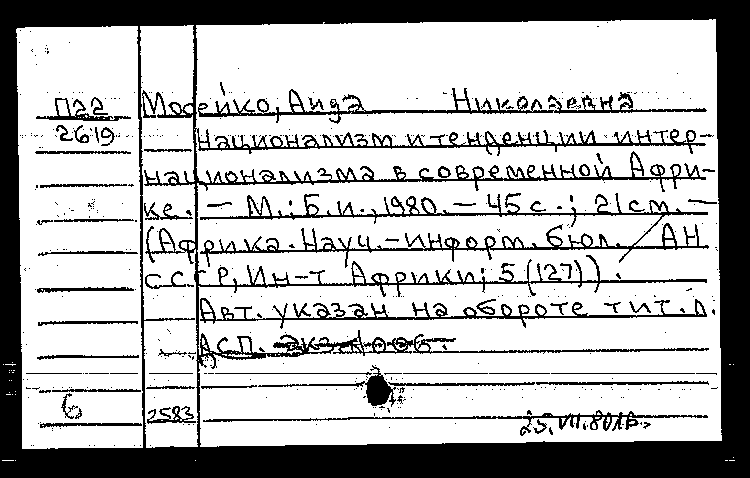 П22 Мосейко, Аида Николаевна
2619 Национализм и тенденции интер-
национализма в современной Афри-
ке. — М.: Б.и., 1980. — 45 с.; 21 см. —
(Африка. Науч.-информ. бюл. / АН
СССР, Ин-т Африки; 5 (127)).
Авт. указан на обороте тит. л.
ДСП.
6 2583
25.VII.80